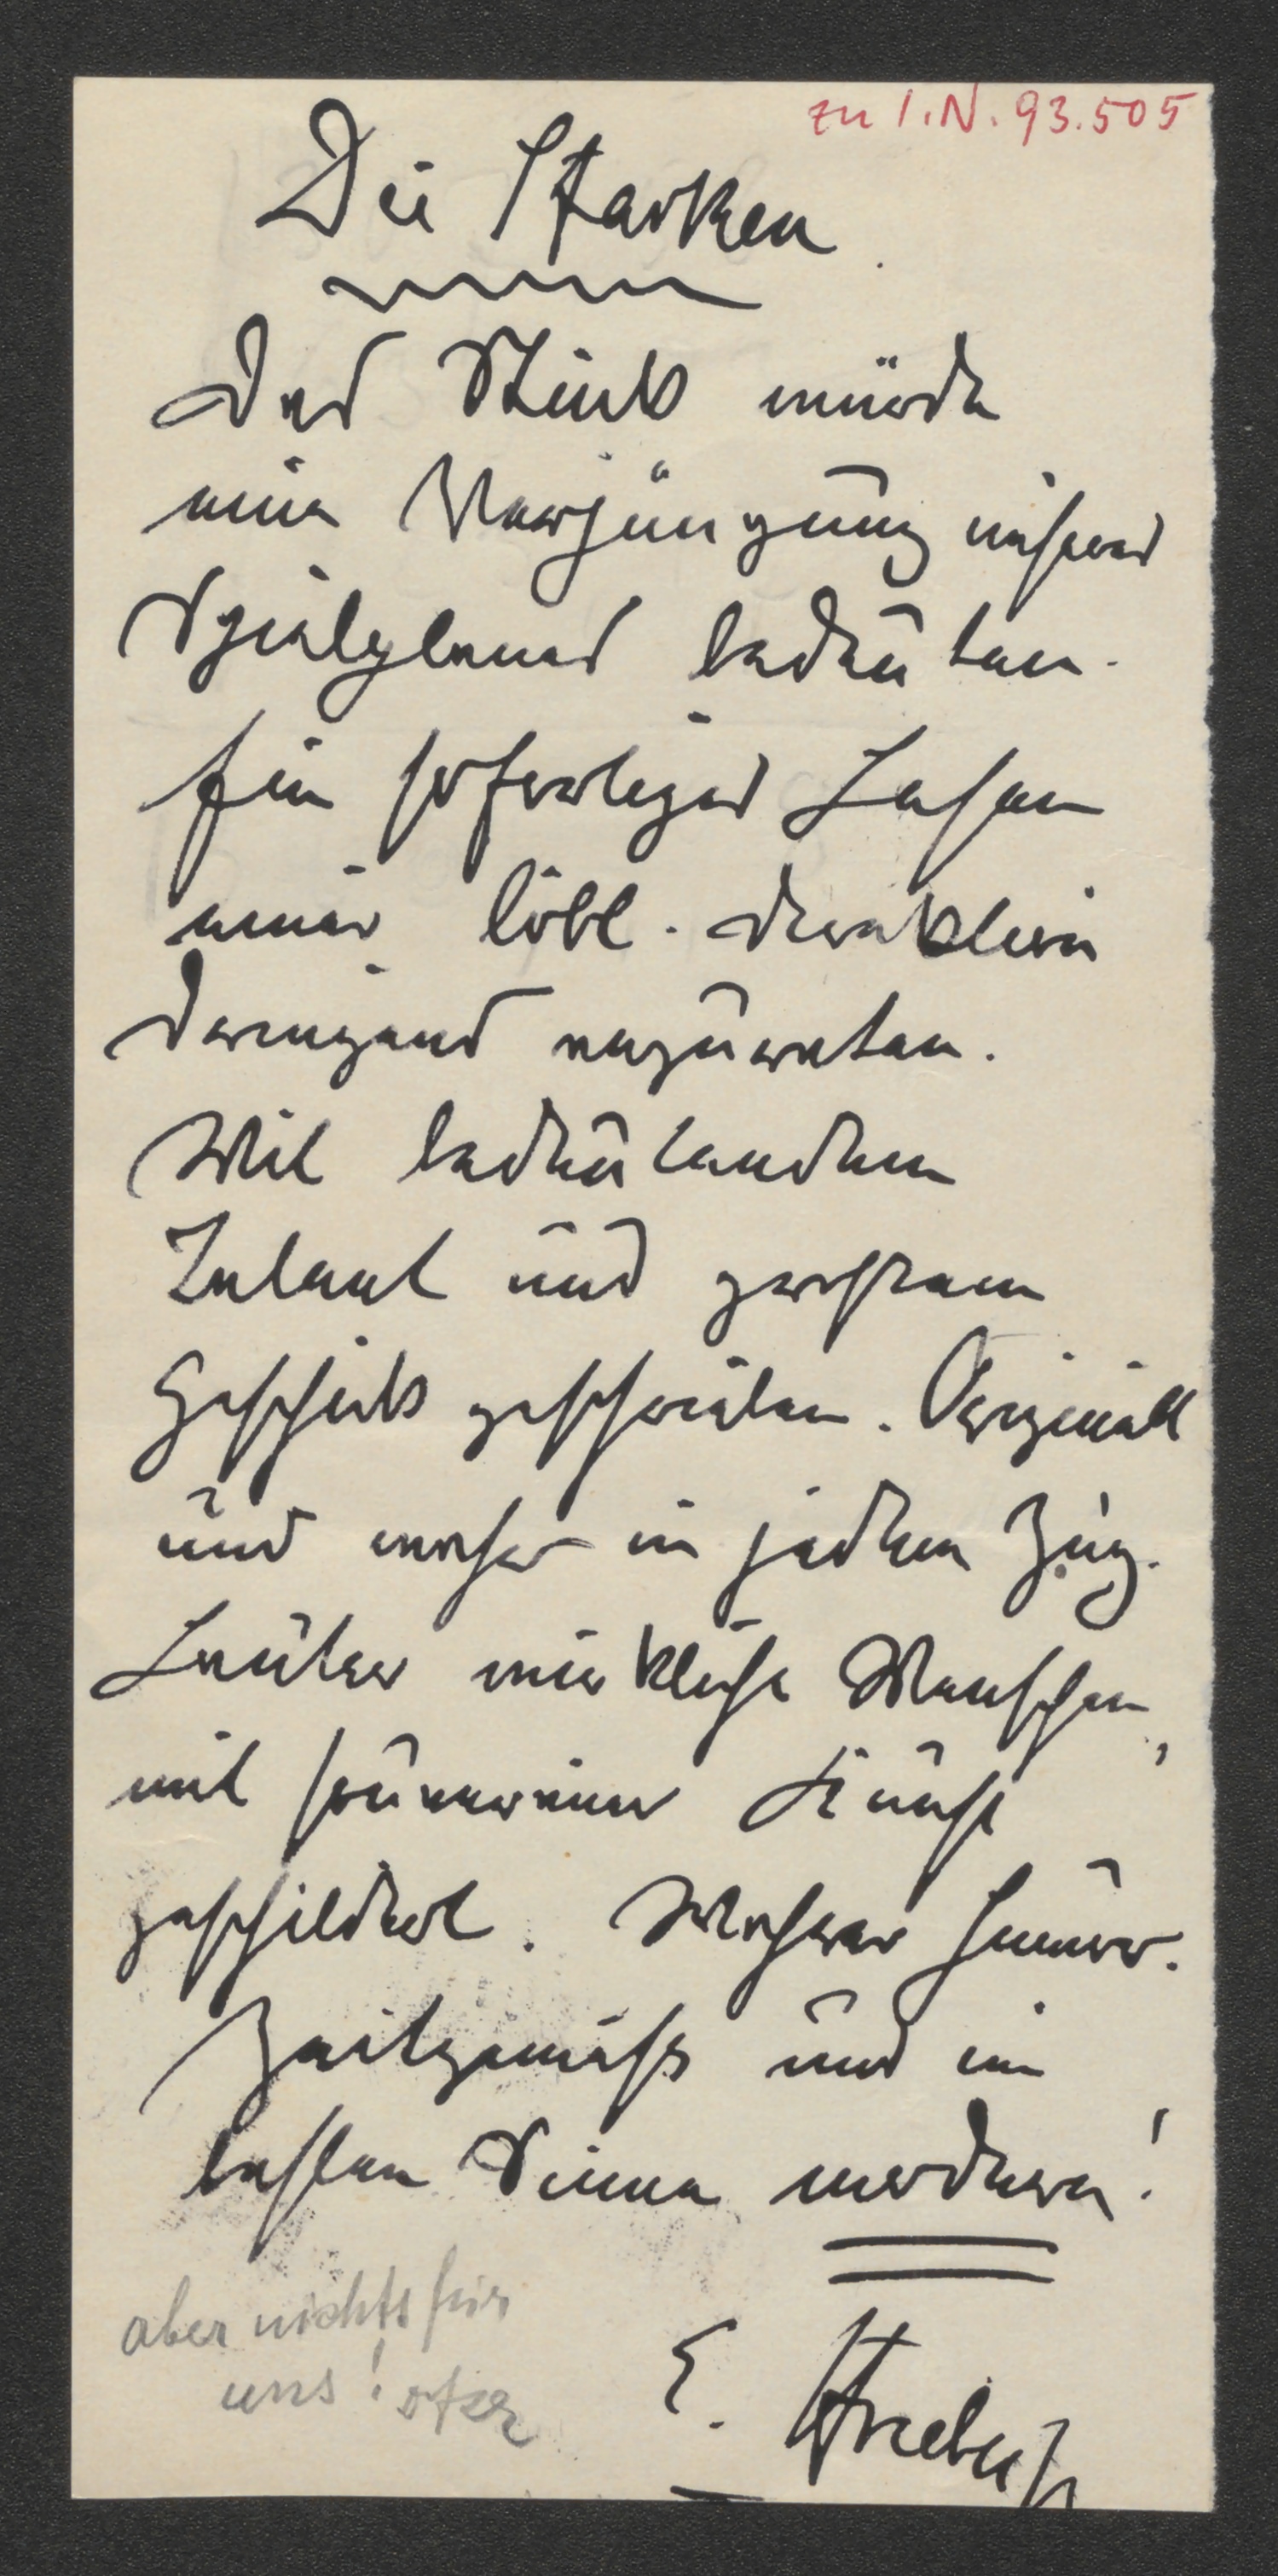 zu I.N. 93.505
Die Starken.
Das Stück würde
eine Verjüngung unseres
Spielplanes bedeuten.
Ein sofortiges Lesen
einer löbl. Direktion
dringend anzuraten.
Mit bedeutendem
Talent und grossem
Geschick geschrieben. Originell
und wahr in jedem Zug.
Lauter wirkliche Menschen,
mit souveräner Kunst
geschildert. Wahrer Humor.
Zeitgemäß und im
besten Sinne modern!
aber nichts für
uns!
E. Strebinger